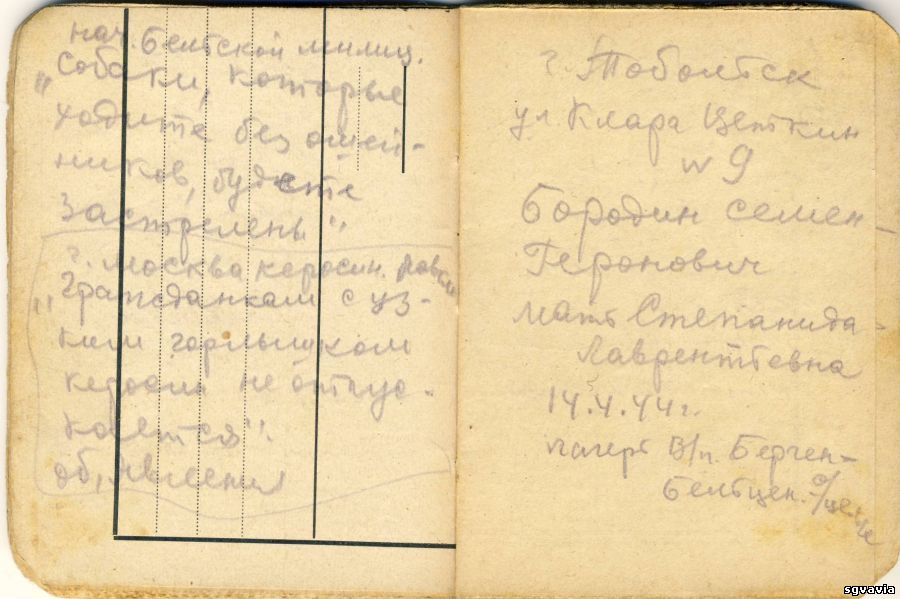 нач. Белтской милиц.
„Собаки, которые
ходите без ошей-
ников, будете
застрелены".
г. Москва керосин. лавки
„Гражданкам с уз-
ким горлышком
керосин не отпус-
кается".
об, явления
г. Тоболтск
ул Клара Цеткин
№ 9
Бородин семен
Геронович
мать Степанида
Лаврентьевна
14.4.44 г.
лагерь В/п. Берген-
Бельцен.
sgvavia